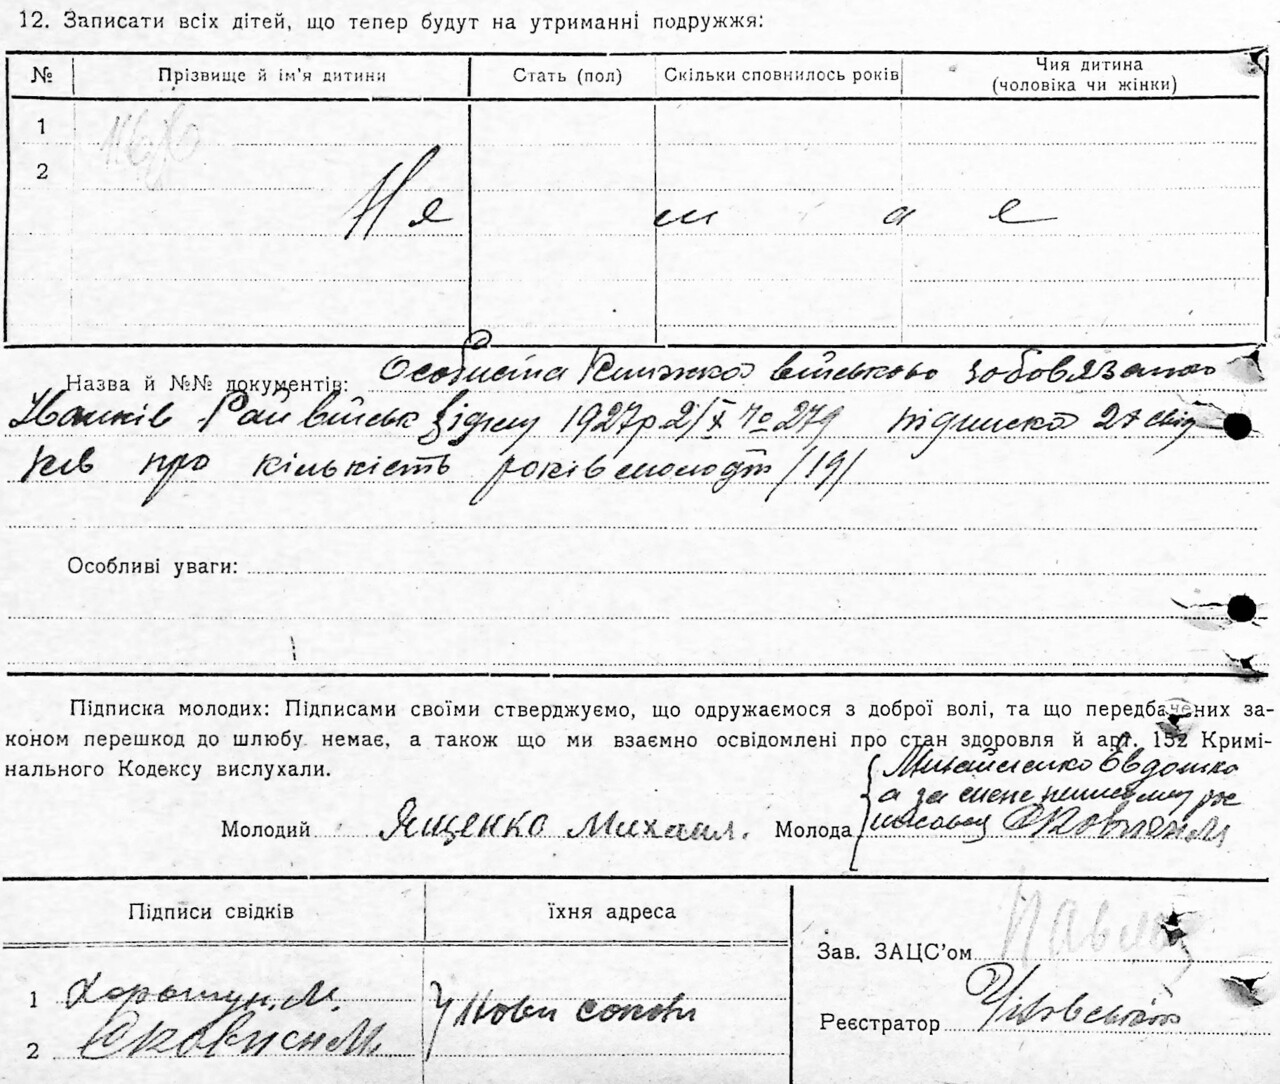 12. Записати всіх дітей, що тепер будут на утриманні подружжя:
№ Прізвище й ім'я дитини Стать (пол) Скільки сповнилось років Чия дитина
(чоловіка чи жінки)
1
2
Не м а є
Назва й №№ документів: Особиста Книжка військово зобовязаного
Рай військ відділу 1927р 2/IX № 279 підписка 2х свід
ків про кількість років молодт /19/
Особливі уваги:
Підписка молодих: Підписами своїми стверджуємо, що одружаємося з доброї волі, та що передбачених за-
коном перешкод до шлюбу немає, а також що ми взаємно освідомлені про стан здоровля й арт. 152 Кримі-
нального Кодексу вислухали.
Молодий Ященко Михаил. Молода Євдошка
а за
Підписи свідків їхня адреса
Зав. ЗАЦС'ом
1 Хорошун. М.
Реєстратор
2